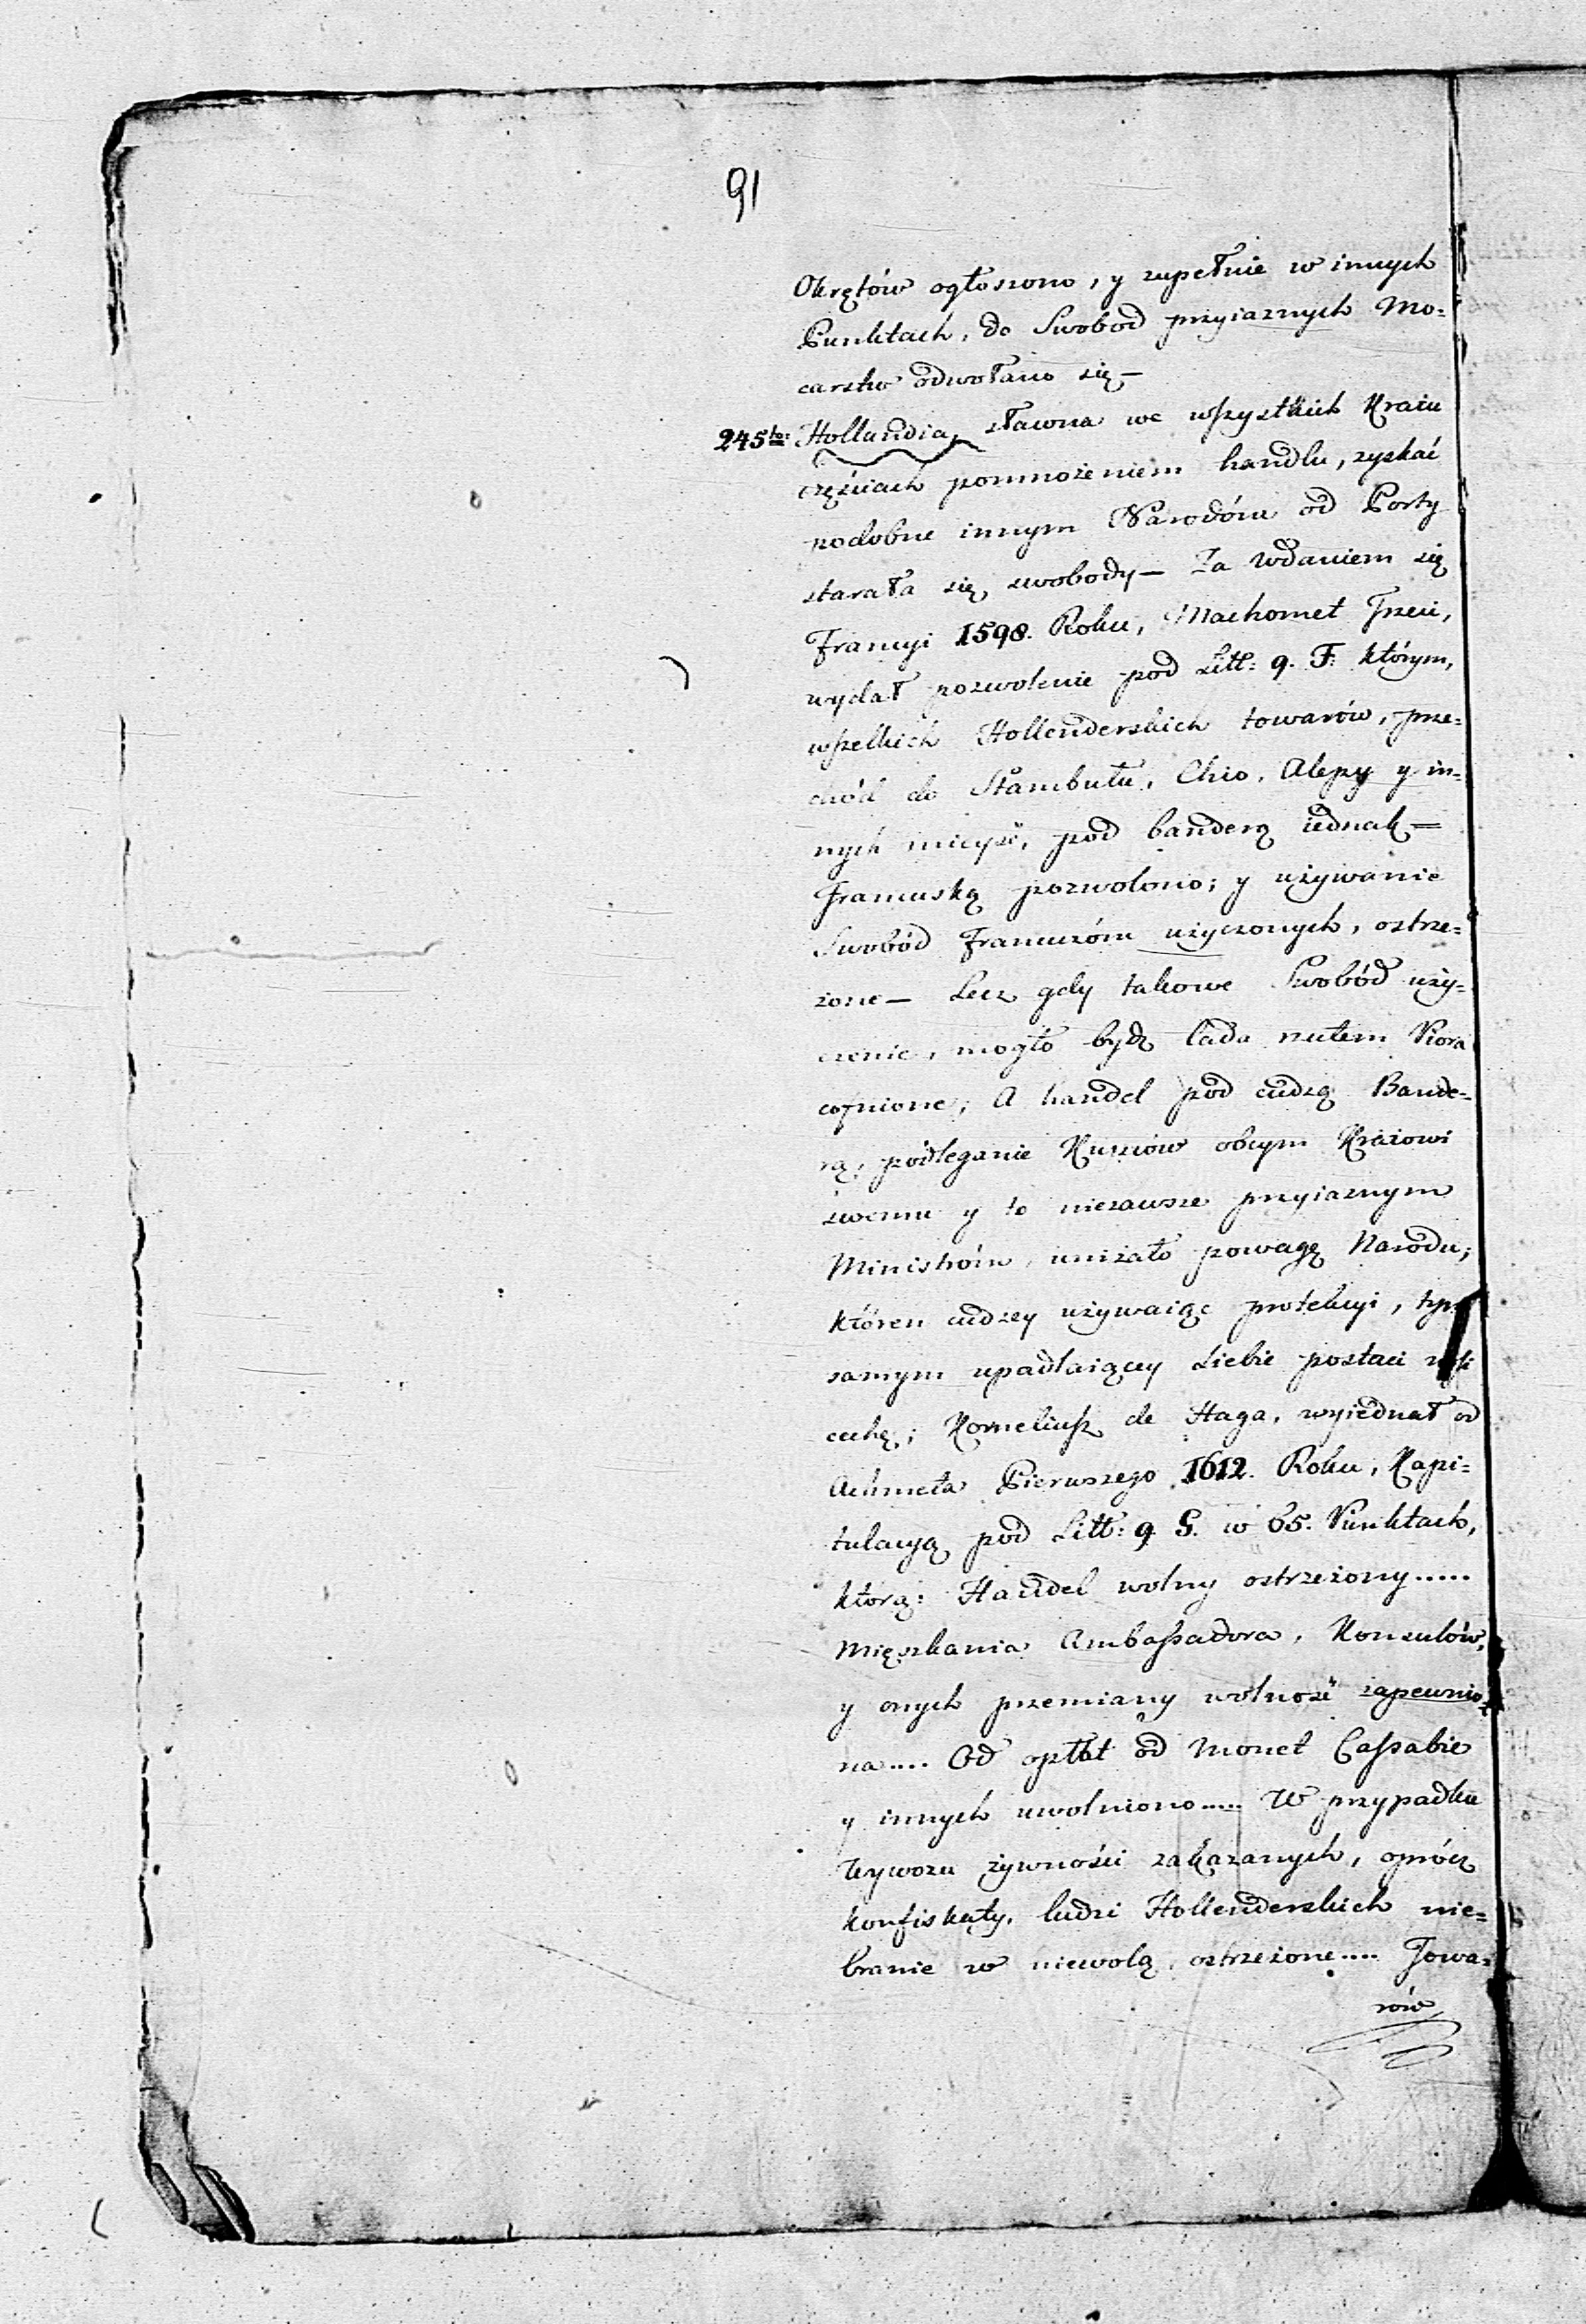 91
Okrętów ogłoszono, y zupełnie w innych
Punktach, do Swobod przyiaznych Mo=
carstw odwołano się —
245to: Hollandia, sławna we wszystkich Kraiu
częściach pomnożeniem handlu, zyskać
podobne innym Narodóm od Porty
starała się swobody — Za wdaniem się
Francyi 1598. Roku, Machomet Trzeci,
wydał pozwolenie pod Litt: 9. F. którym,
wszelkich Hollenderskich towarów, prze=
chód do Stambułu, Chio, Alepy y in=
nych mieysc, pod banderą iednak =
Francuską pozwolono; y używanie
Swobód Francuzóm użyczonych, ostrze=
żone — Lecz gdy takowe Swobód uży=
czenie, mogło bydź lada rzutem Piora
cofnione; A handel pod cudzą Bande=
rą, podleganie Kupców obcym Kraiowi
swemu y to niezawsze przyiaznym
Ministróm, uniżało powagę Narodu,
któren cudzey używaiąc protekcyi, tym
samym upadlaiącey Siebie postaci
cechę; Korneliusz de Haga, wyiednał od
Achmeta Pierwszego 1612. Roku, Kapi=
tulacyą pod Litt: 9. G. w 65. Punktach,
którą: Handel wolny ostrzeżony.....
Mięszkania Ambassadora, Konsulów,
y onych przemiany wolność zapewnio=
na.... Od opłat od Monet Cassabie
y innych uwolniono..... W przypadku
Wywozu żywności zakazanych, oprócz
konfiskaty, ludzi Hollenderskich nie=
branie w niewolą, ostrzeżone.... Towa=
rów